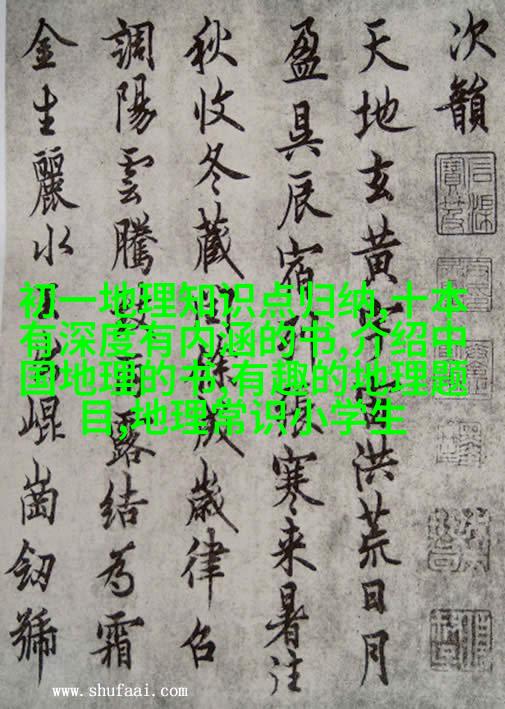 次韻
天地玄黃洪荒日月
盈昃辰宿張寒来暑往
秋收冬藏歲律召
調陽雲騰露結為霜
金生麗水崐崗劒號
初一地理知识点归纳,十本
有深度有内涵的书,介绍中
国地理的书,有趣的地理题
目,地理常识小学生
www.shufaai.com